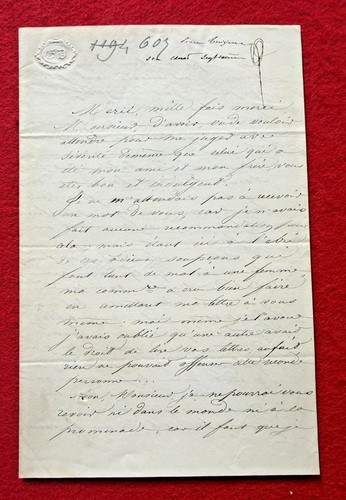 1194 603
Merci, mille fois merci
Monsieur, d'avoir voulu
attendre pour me juger avec
sévérité que celui qui a
été mon ami et mon frère, vous
êtes bon et indulgent.
Je ne m'attendais pas à recevoir
un mot de vous, car je n'avais
fait aucune recommandation pour
cela, mais étant ici à l'abri
de ces soupçons qui
font tant de mal à une femme,
ma a cru bien faire
en remettant ma lettre à vous
même: moi même je l'avoue
j'avais oublié qu'une autre avait
le droit de lire vos lettres au fait
rien ne pouvait offenser cette seconde
personne...
Non, Monsieur je ne pourrai vous
revoir ni dans le monde ni à la
promenade, car il faut que je